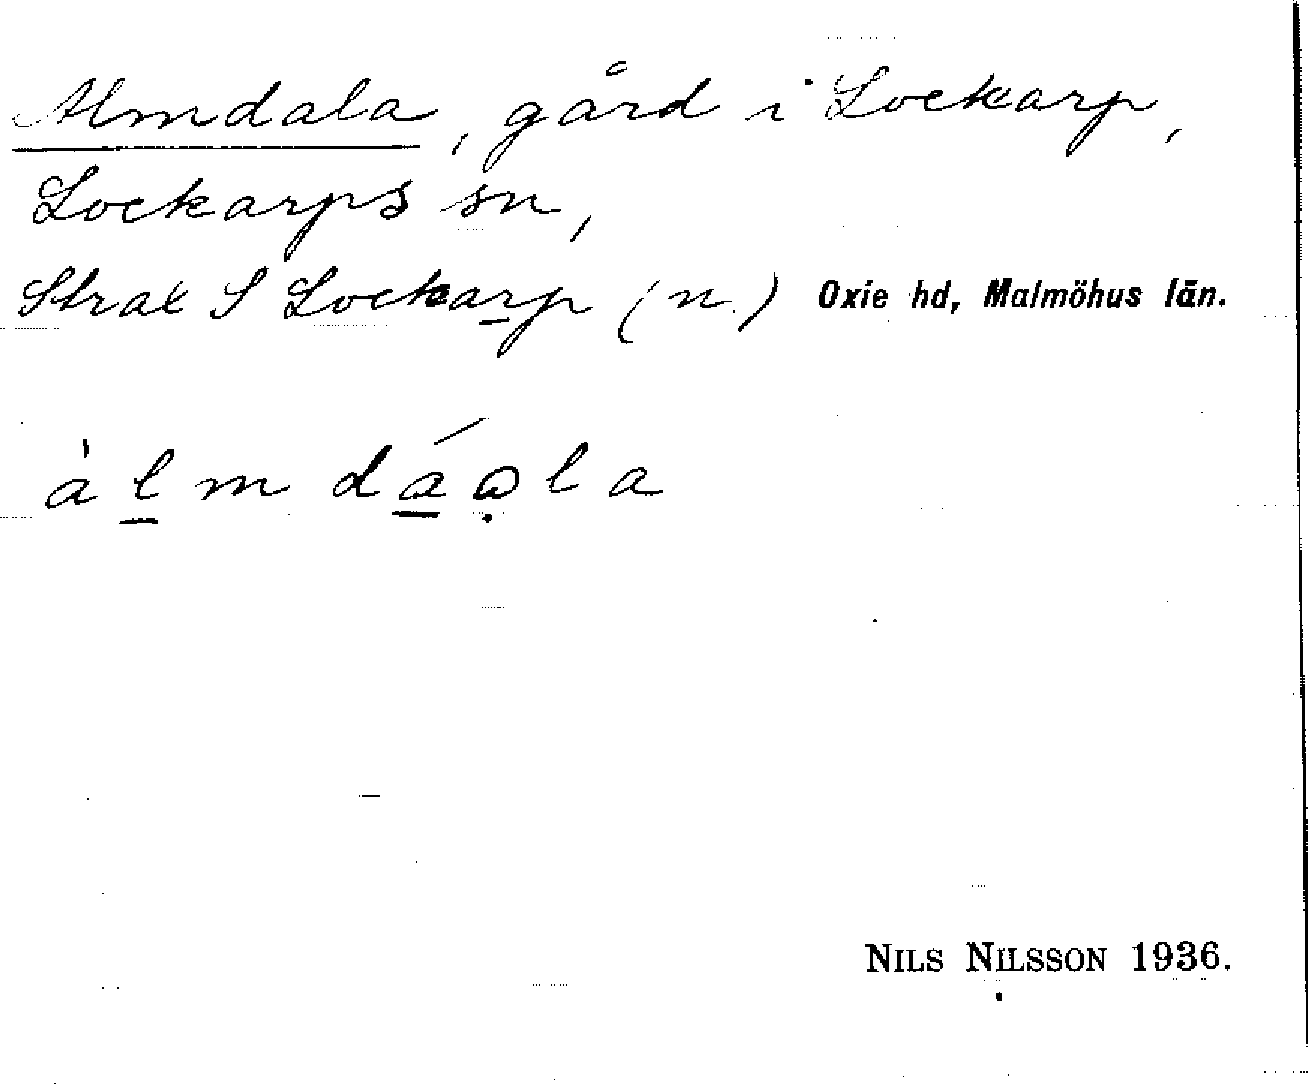 Almdala, gård i Lockarp,
Lockarps sn,
Strax S Lockarp (n.) Oxie hd, Malmöhus län.
àlmdáɷla
NILS NILSSON 1936.